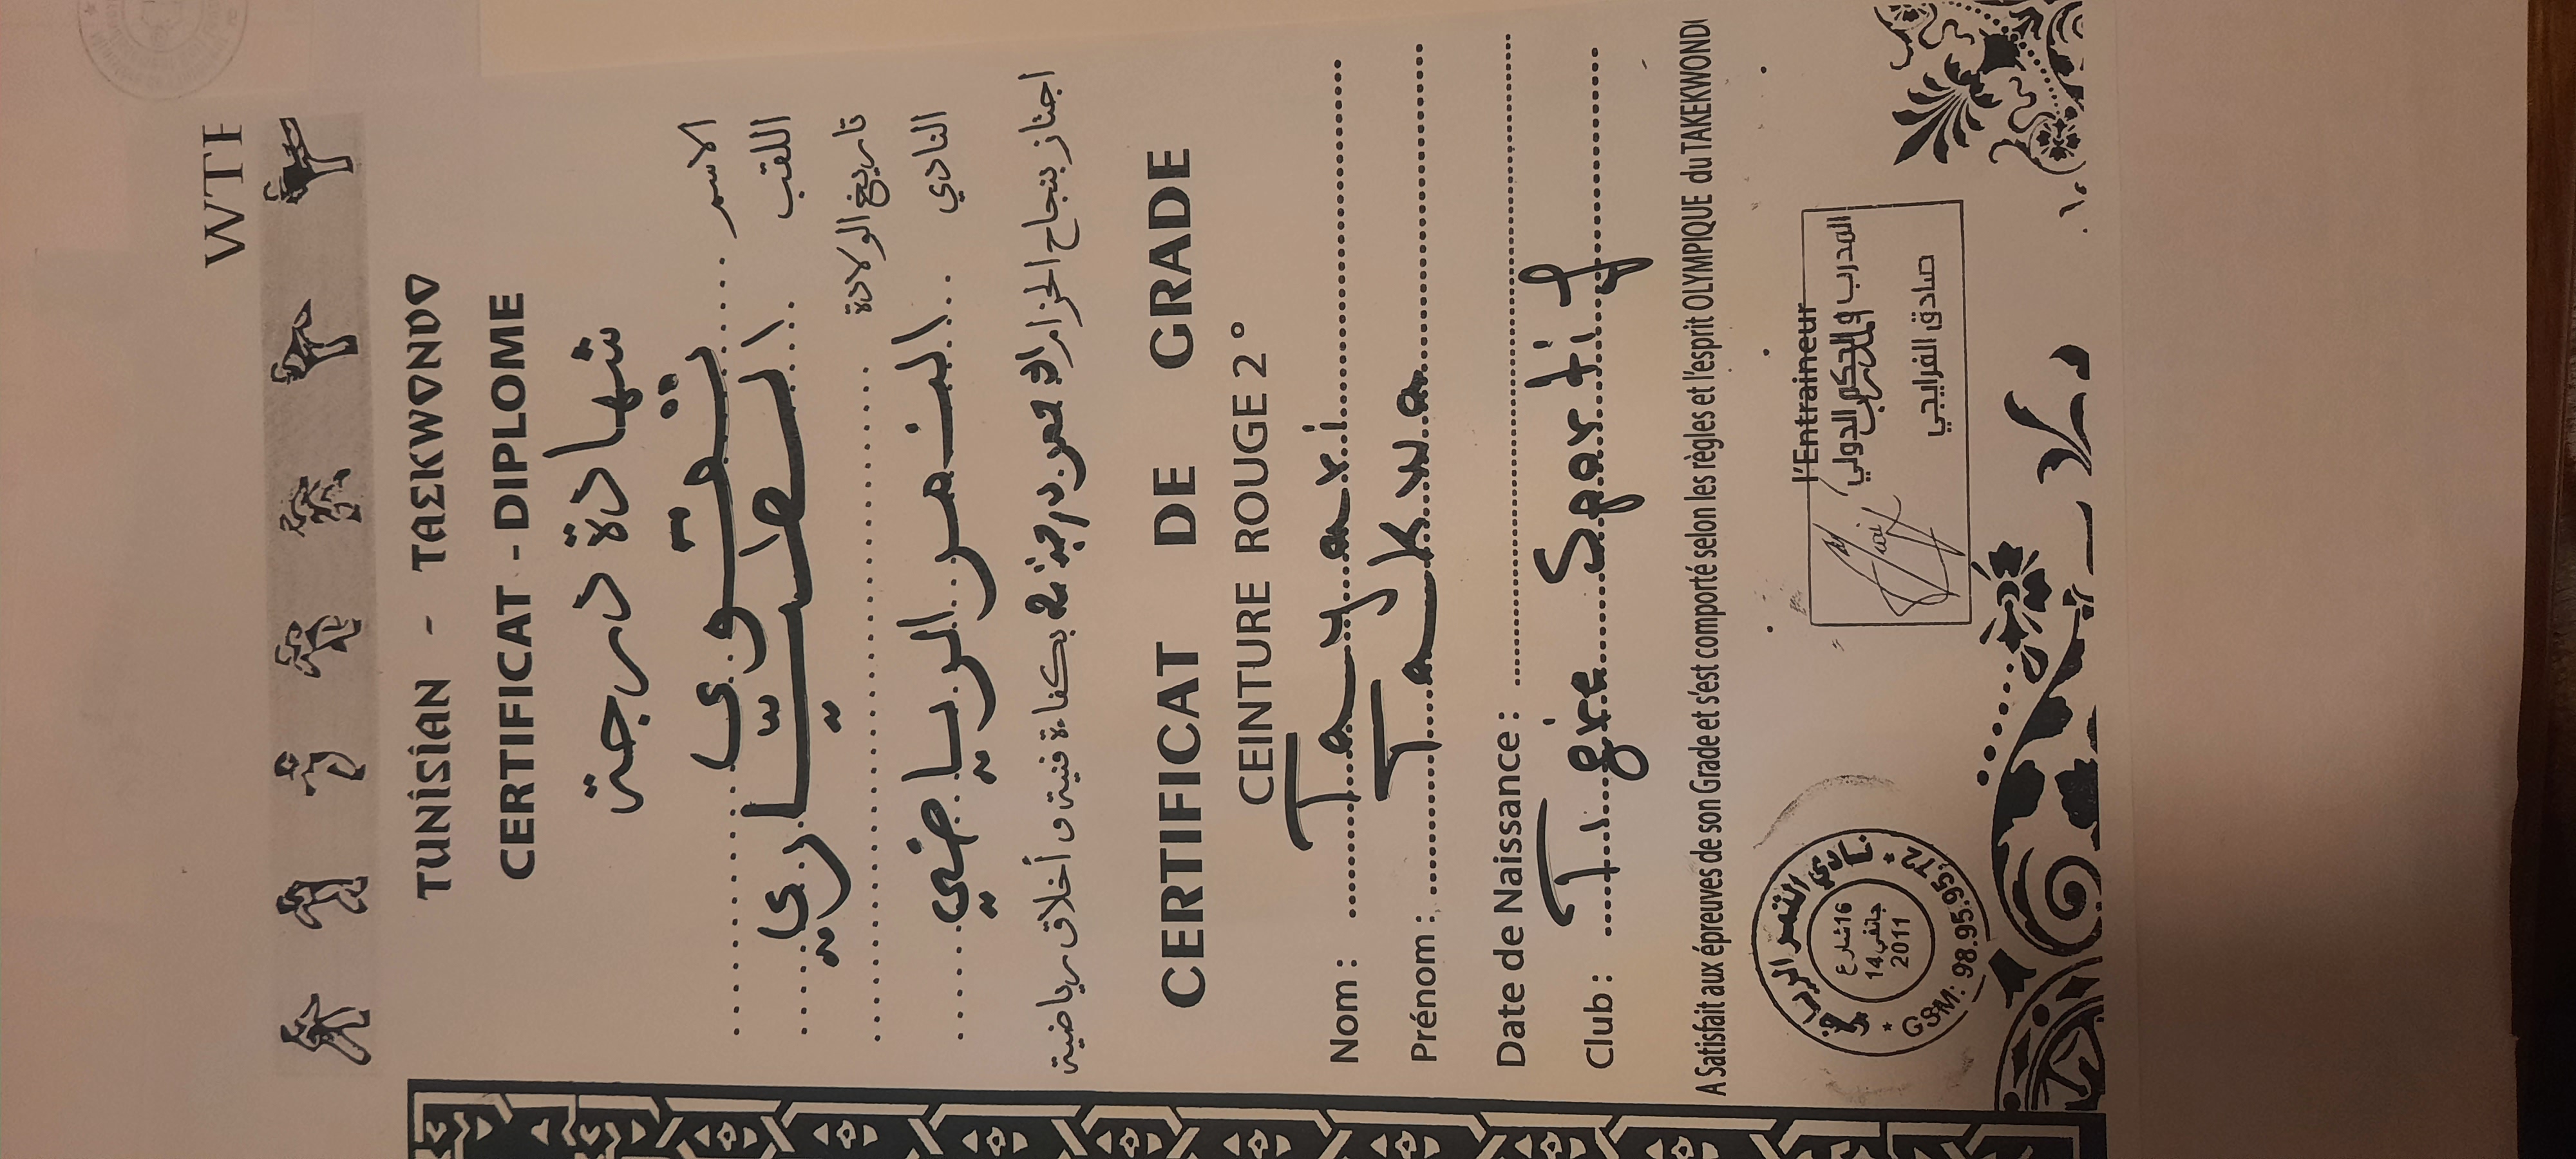 WTF
TUNISIAN - TAEKWONDO
CERTIFICAT - DIPLOME
شهادة درجة
الاسم تقوى
اللقب الطيّاري
تاريخ الولادة
النادي النمر الرياضي
اجتاز بنجاح الحزام الأحمر درجة 2 بكفاءة فنية و أخلاق رياضية
CERTIFICAT DE GRADE
CEINTURE ROUGE 2°
Nom : Tayari
Prénom : Takwa
Date de Naissance :
Club : Tigre Sportif
A Satisfait aux épreuves de son Grade et s'est comporté selon les règles et l'esprit OLYMPIQUE du TAKEKWONDO
l'Entraineur
المدرب
الدولي
صادق الفرايجي
نادي النمر الرياضي
16 شارع
14 جانفي
2011
GSM: 98.95.95.72